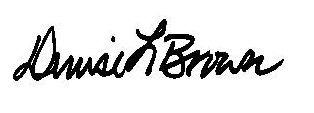 Denise L Brown